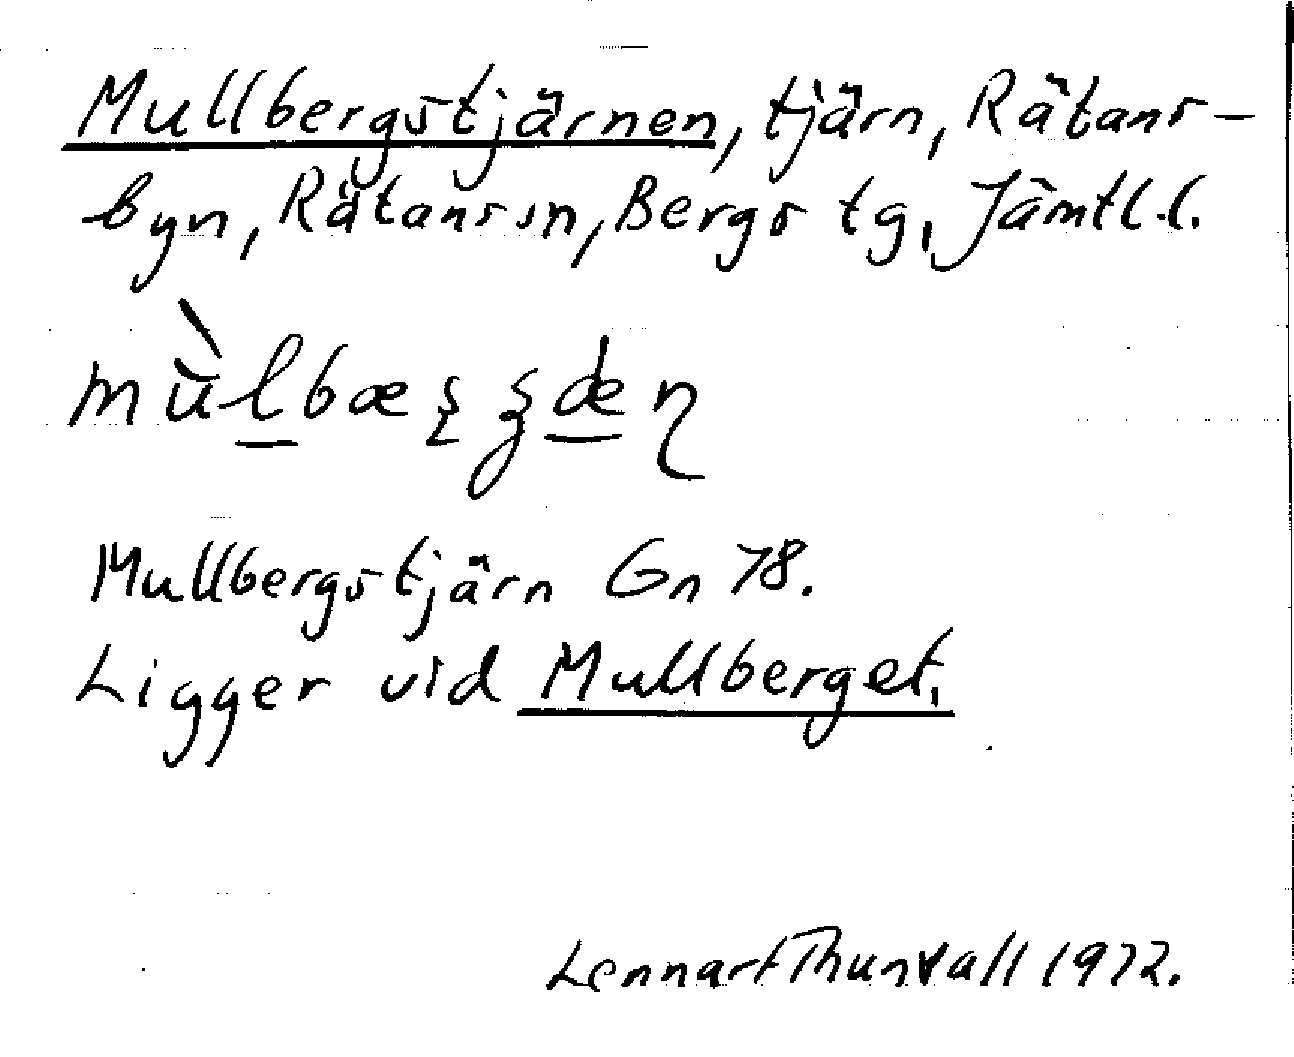 Mullbergstjärnen, tjärn, Rätans-
byn, Rätans sn, Bergs tg, Jämtl.l.
Mullbergstjärn Gn 78.
Ligger vid Mullberget.
Lennart Thunvall 1972.